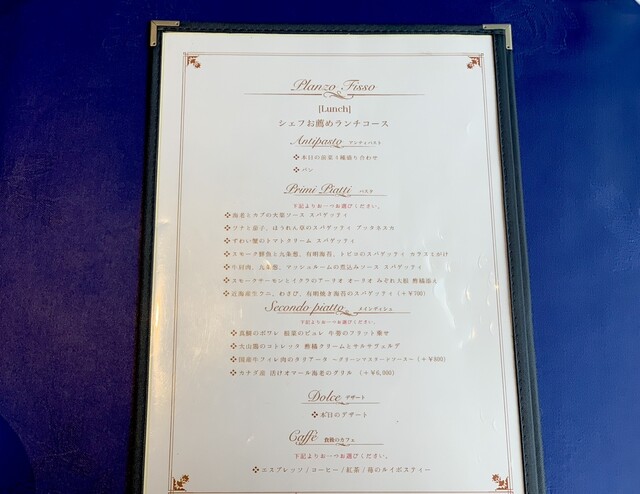 Planzo Fisso
[Lunch]
シェフお薦めランチコース
Antipasto アンティパスト
❖本日の前菜4種盛り合わせ
❖パン
Primi Piatti パスタ
下記よりお一つお選びください。
❖海老とカブの大葉ソース スパゲッティ
❖ツナと茄子、ほうれん草のスパゲッティ プッタネスカ
❖ずわい蟹のトマトクリーム スパゲッティ
❖スモーク鮮魚と九条葱、有明海苔、トビコのスパゲッティ カラスミがけ
❖牛肩肉、九条葱、マッシュルームの煮込みソース スパゲッティ
❖スモークサーモンとイクラのアーリオ オーリオ みぞれ大根 酢橘添え
❖近海産生ウニ、わさび、有明焼き海苔のスパゲッティ (+¥700)
Secondo piatto メインディシュ
下記よりお一つお選びください。
❖真鯛のポワレ 根菜のピュレ 牛蒡のフリット乗せ
❖大山鶏のコトレッタ 酢橘クリームとサルサヴェルデ
❖国産牛フィレ肉のタリアータ ～グリーンマスタードソース～ (+¥800)
❖カナダ産 活けオマール海老のグリル (+¥6,000)
Dolce デザート
❖本日のデザート
Caffé 食後のカフェ
下記よりお一つお選びください。
❖エスプレッソ/コーヒー/紅茶/苺のルイボスティー